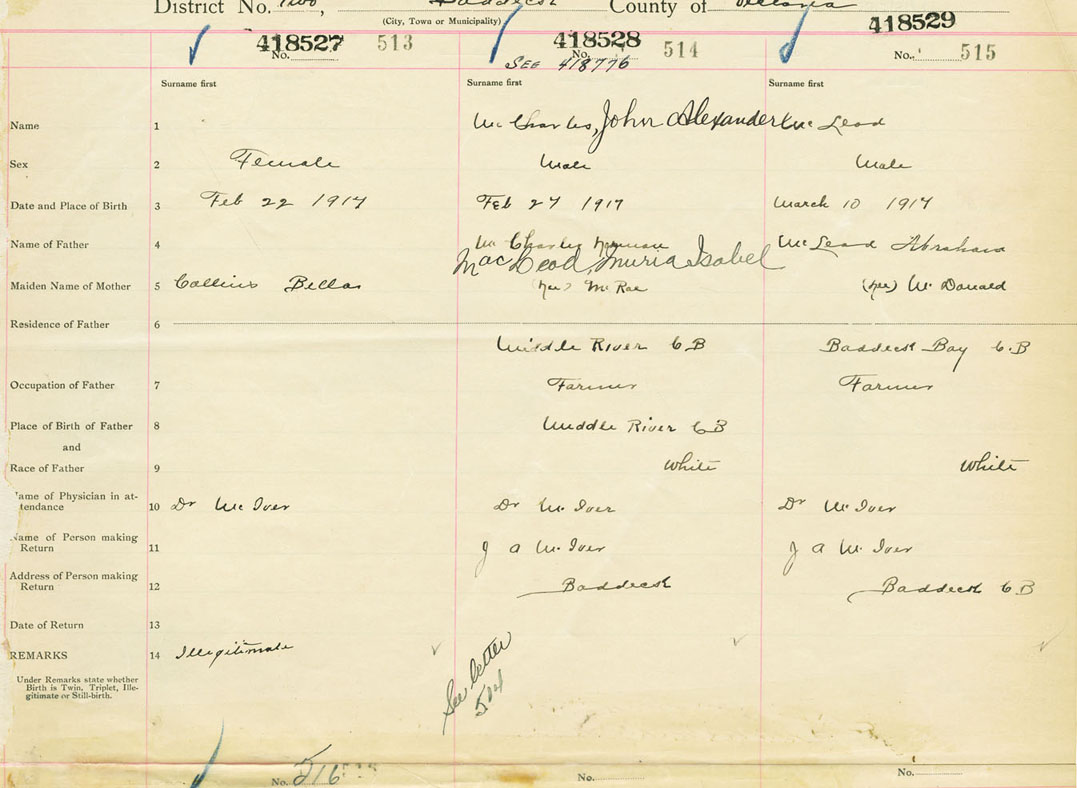 District No. Two, Baddeck County of Victoria
(City, Town or Municipality)
418527 513 418528 514 418529
No. No. No. 515
See 418776
Surname first Surname first Surname first
Name 1 Mc Charles, John Alexander Mc Leod
Sex 2 Female Male Male
Date and Place of Birth 3 Feb 22 1917 Feb 27 1917 March 10 1917
Name of Father 4 Mc Charles Norman Mc Leod Abraham
MacLeod, Muria Isabel
Maiden Name of Mother 5 Collins Bella (nee) McRae (nee) McDonald
Residence of Father 6
Middle River C.B Baddeck Bay C.B
Occupation of Father 7 Farmer Farmer
Place of Birth of Father 8 Middle River C.B
and
Race of Father 9 White White
Name of Physician in at-
tendance 10 Dr Mc Iver Dr Mc Iver Dr Mc Iver
Name of Person making
Return 11 J A Mc Iver J A Mc Iver
Address of Person making
Return 12 Baddeck Baddeck C.B
Date of Return 13
REMARKS 14 Illegitimate
Under Remarks state whether
Birth is Twin, Triplet, Ille-
gitimate or Still-birth.
See letter
514
No. 516 No. No.